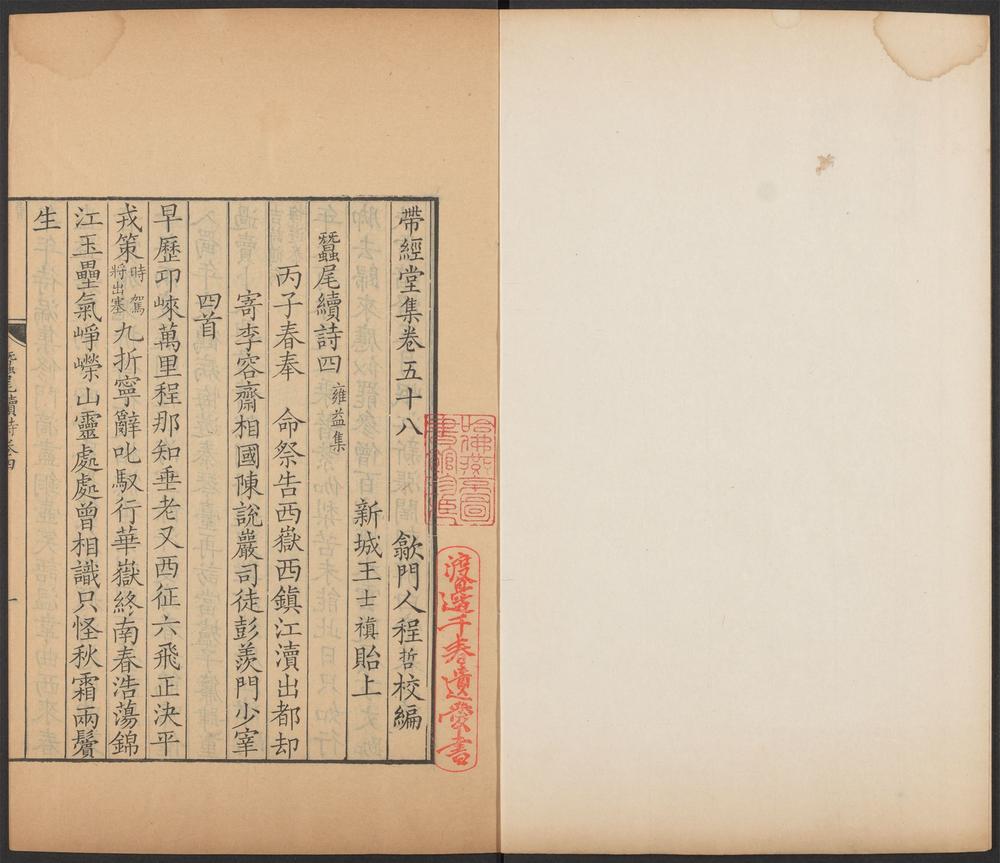 帶經堂集卷五十八
歙門人程哲校編
新城王士禛貽上
蠶尾續詩四 雍益集
丙子春奉 命祭告西嶽西鎮江瀆出都却
寄李容齋相國陳說巖司徒彭羨門少宰
四首
早歷邛崍萬里程那知垂老又西征六飛正決平
戎策時駕將出塞九折寧辭叱馭行華嶽終南春浩蕩錦
江玉壘氣崢嶸山靈處處曾相識只怪秋霜兩鬢
生
蠶尾續詩卷四
一
哈佛燕京圖書館珍藏
渡邊千春遺愛書